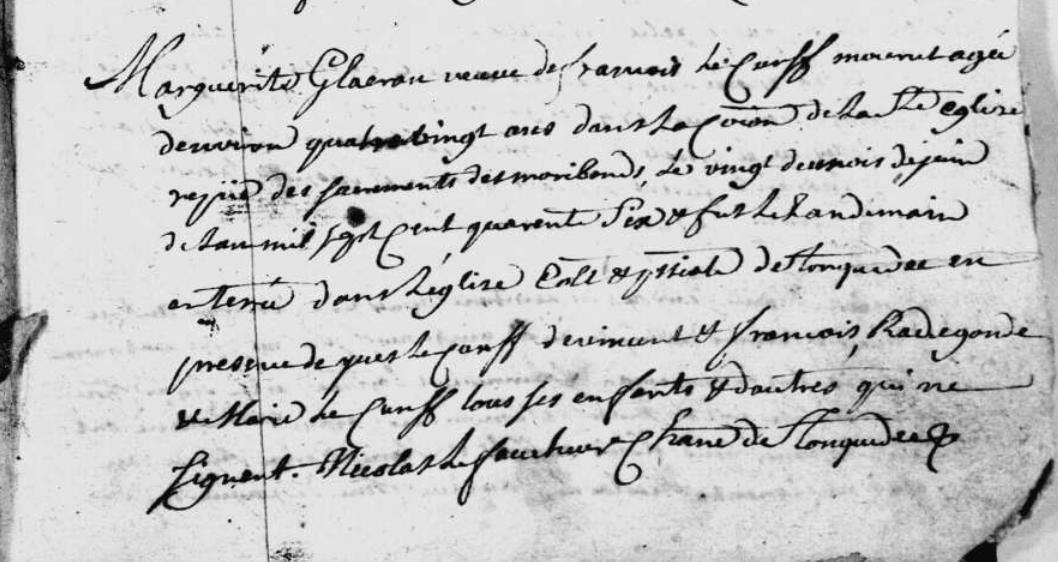 Marguerite Glaeran veuve de francois Le Cunff mourut agée
denviron quatrevingt ans dans La Coion de La Ste eglise
reçüe des sacrements des moribonds, Le vingt deux mois de juin
de Lan mil sept Cent quarente Six & fut Le Landemain
enterrée dans Léglise Coll & pssiale de Tonquedec en
presence de yves Le Cunff et francois, Radegonde
& Marie Le Cunff tous ses enfants & dautres qui ne
signent. Nicolas Le faucheur Chane de Tonquedec